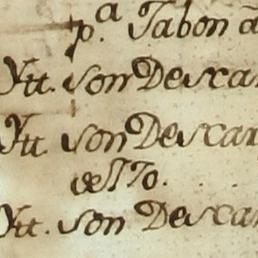 p.ª Jabon a
Ytt. son Descar
Ytt son Descar
Ytt. son Descar